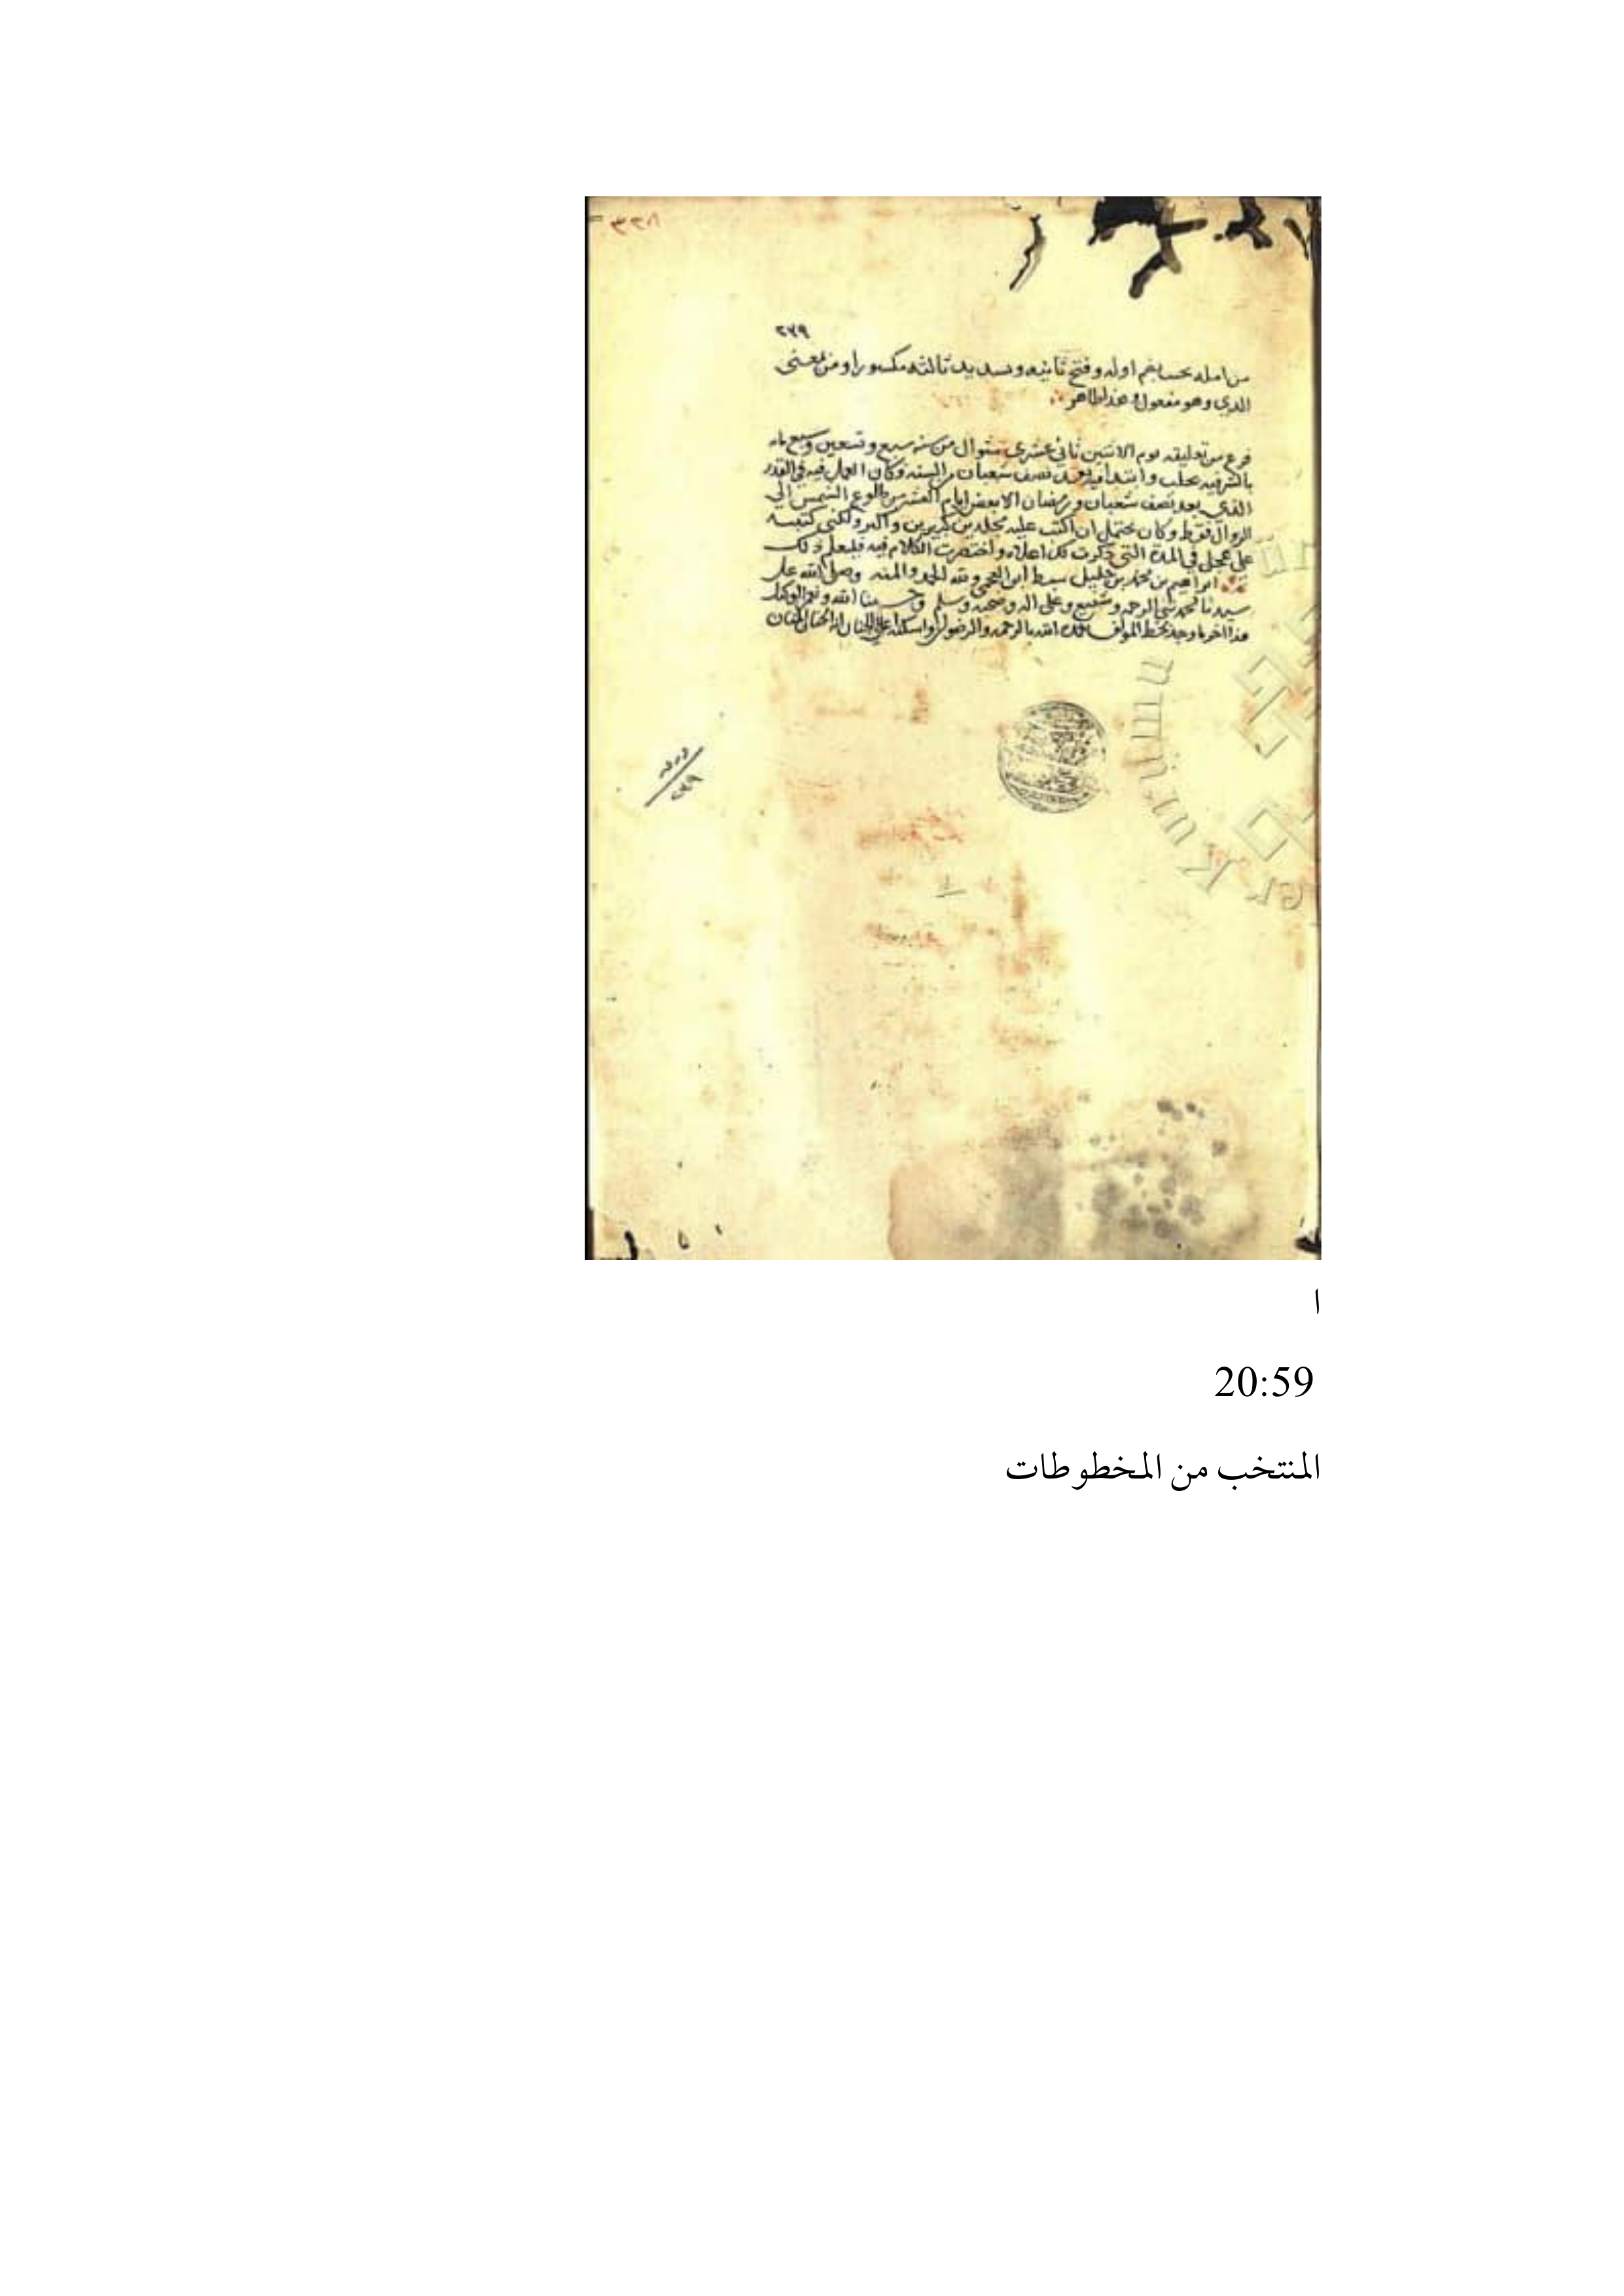 ٢٧٩
من امله بحسا بضم اوله وفتح ثانيه وتسديد ثالثه مكسورا ومن بمعنى
الذي وهو مفعول وهذا ظاهر
فرغ من تعليقه يوم الاثنين ثاني عشري شوال من سنه سبع وتسعين وسبع مايه
بالشرفيه بحلب وابتدا فيه بعد نصف شعبان من السنه وكان العمل فيه في القدر
الذي بعد نصف شعبان ورمضان الا بعض ايام العشر من طلوع الشمس الي
الزوال فقط وكان يحتمل ان اكتب عليه مجلدين كبيرين واكبر ولكني كتبته
على عجل في المدة التي ذكرت لك اعلاه واختصرت الكلام فيه فليعلم ذلك
ابراهيم بن محمد بن خليل سبط ابن العجمي ولله الحمد والمنه وصلى الله على
سيدنا محمد نبي الرحمه وشفيع وعلى اله وصحبه وسلم وحسبنا الله ونعم الوكيل
هذا اخر ما وجد بخط المولف الله بالرحمه والرضوان واسكنه اعلى الجنان انه الحنان المنان
٢٧٩
er Kurumu
ا
20:59
المنتخب من المخطوطات